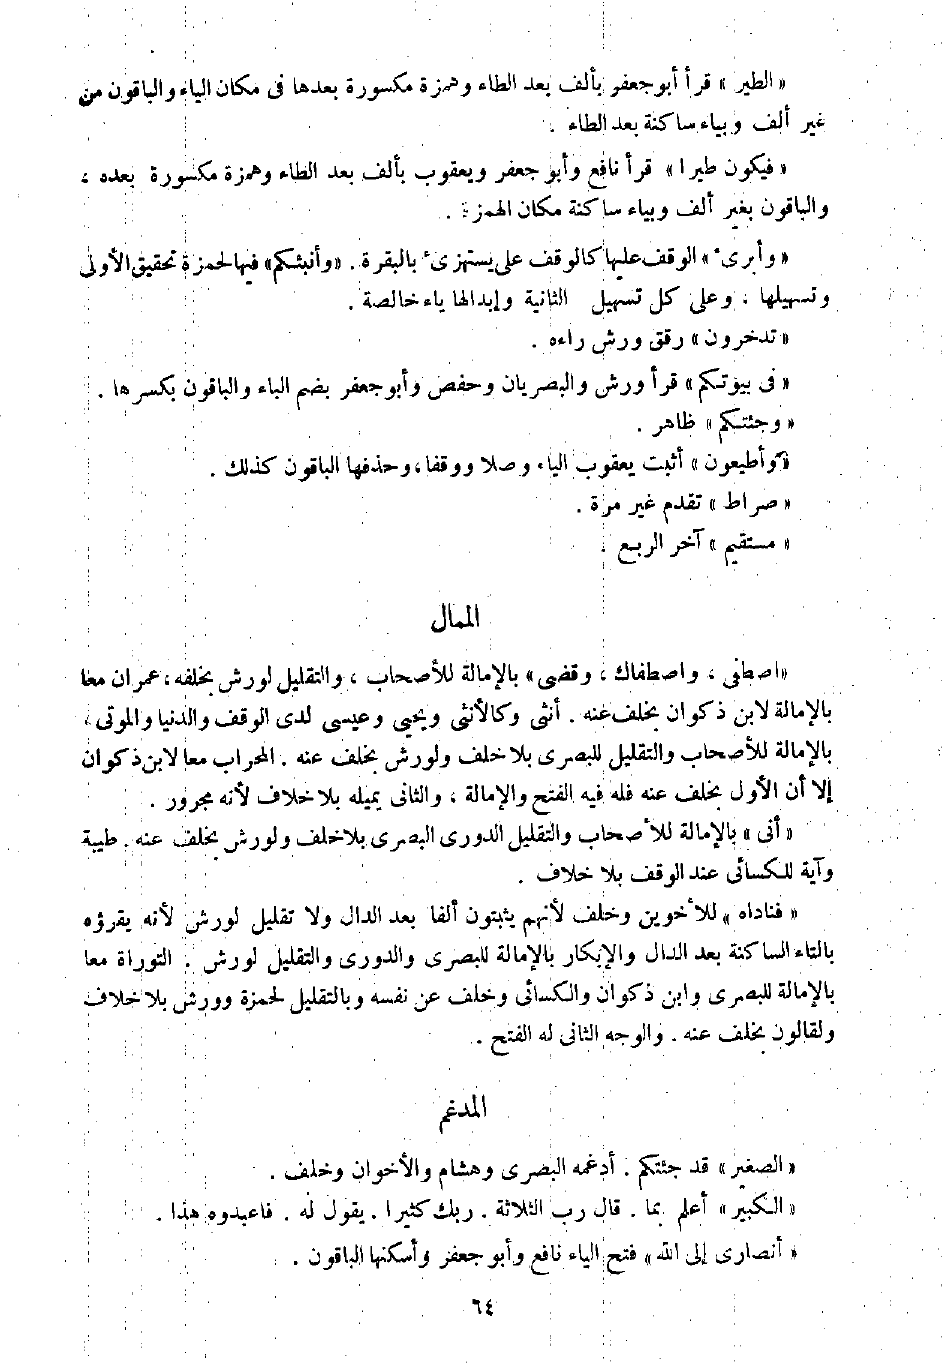 « الطير » قرأ أبو جعفر بألف بعد الطاء وهمزة مكسورة بعدها فى مكان الياء والباقون من
غير ألف وبياء ساكنة بعد الطاء .
« فيكون طيرا » قرأ نافع وأبو جعفر ويعقوب بألف بعد الطاء وهمزة مكسورة بعده ،
والباقون بغير ألف وبياء ساكنة مكان الهمزة .
« وأبرىء » الوقف عليها كالوقف على يستهزىء بالبقرة . «وأنبئكم» فيها لحمزة تحقيق الأولى
وتسهيلها ، وعلى كل تسهيل الثانية وإبدالها ياء خالصة .
« تدخرون » رقق ورش راءه .
« فى بيوتكم » قرأ ورش والبصريان وحفص وأبو جعفر بضم الباء والباقون بكسرها .
« وجئتكم » ظاهر .
« وأطيعون » أثبت يعقوب الياء وصلا ووقفا ، وحذفها الباقون كذلك .
« صراط » تقدم غير مرة .
« مستقيم » آخر الربع .
الممال
«اصطفى ، واصطفاك ، وقضى» بالإمالة للأصحاب ، والتقليل لورش بخلفه ، عمران معا
بالإمالة لابن ذكوان بخلف عنه . أنثى وكالأنثى ويحيى وعيسى لدى الوقف والدنيا والموتى ،
بالإمالة للأصحاب والتقليل للبصرى بلا خلف ولورش بخلف عنه . المحراب معا لابن ذكوان
إلا أن الأول بخلف عنه فله فيه الفتح والإمالة ، والثانى يميله بلا خلاف لأنه مجرور .
« أنى » بالإمالة للأصحاب والتقليل الدورى البصرى بلا خلف ولورش بخلف عنه . طيبة
وآية للكسائى عند الوقف بلا خلاف .
« فناداه » للأخوين وخلف لأنهم يثبتون ألفا بعد الدال ولا تقليل لورش لأنه يقرؤه
بالتاء الساكنة بعد الدال والإبكار بالإمالة للبصرى والدورى والتقليل لورش . التوراة معا
بالإمالة للبصرى وابن ذكوان والكسائى وخلف عن نفسه وبالتقليل لحمزة وورش بلا خلاف
ولقالون بخلف عنه . والوجه الثانى له الفتح .
المدغم
« الصغير » قد جئتكم . أدغمه البصرى وهشام والأخوان وخلف .
« الكبير » أعلم بما . قال رب الثلاثة . ربك كثيرا . يقول له . فاعبدوه هذا .
« أنصارى إلى الله » فتح الياء نافع وأبو جعفر وأسكنها الباقون .
٦٤